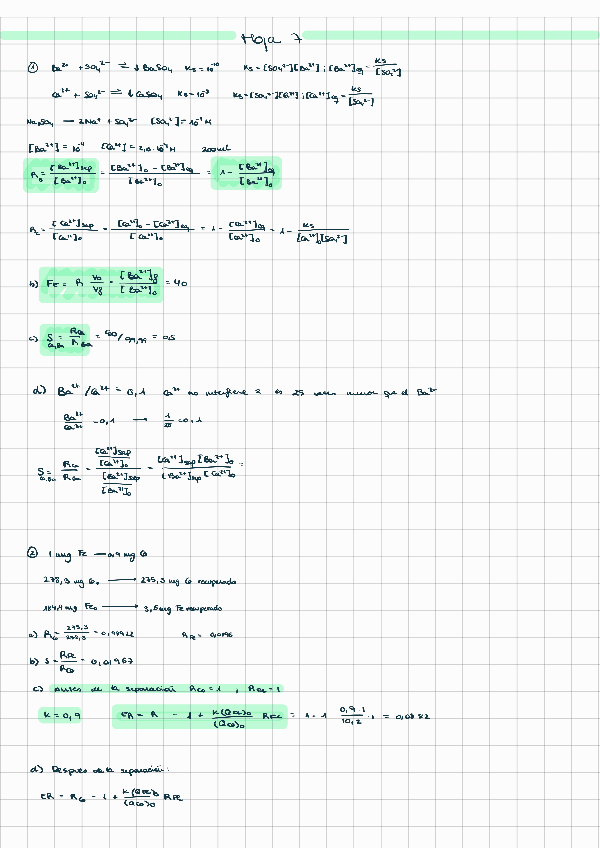 Hoja 7
① Ba²⁺ + SO₄²⁻ ⇌ ↓ BaSO₄ Ks = 10⁻¹⁰ Ks = [SO₄²⁻][Ba²⁺] ; [Ba²⁺]eq = Ks/[SO₄²⁻]
Ca²⁺ + SO₄²⁻ ⇌ ↓ CaSO₄ Ks = 10⁻⁵ Ks = [SO₄²⁻][Ca²⁺] ; [Ca²⁺]eq = Ks/[SO₄²⁻]
Na₂SO₄ → 2Na⁺ + SO₄²⁻ [SO₄²⁻] = 10⁻¹ M
[Ba²⁺] = 10⁻⁴ [Ca²⁺] = 200ml
= [Ba²⁺]sep/[Ba²⁺]₀ = [Ba²⁺]₀ - [Ba²⁺]eq/[Ba²⁺]₀ = 1 - [Ba²⁺]eq/[Ba²⁺]₀
= [Ca²⁺]sep/[Ca²⁺]₀ = [Ca²⁺]₀ - [Ca²⁺]eq/[Ca²⁺]₀ = 1 - [Ca²⁺]eq/[Ca²⁺]₀ = 1 - Ks/[Ca²⁺]₀[SO₄²⁻]
b) FE = R V₀/Vf = [Ba²⁺]f/[Ba²⁺]₀ = 40
c) S Ca,Ba = RCa/RBa = 50/99,99 = 0,5
d) Ba²⁺/Ca²⁺ = 0,1 Ca²⁺ no interfiere es 25 veces menor que el Ba²⁺
Ba²⁺/Ca²⁺ = 0,1 → 1/25 < 0,1
S Ca,Ba = RCa/RBa = [Ca²⁺]sep/[Ca²⁺]₀ / [Ba²⁺]sep/[Ba²⁺]₀ = [Ca²⁺]sep [Ba²⁺]₀/[Ba²⁺]sep [Ca²⁺]₀ =
② 1 mg Fe → 0,9 mg Co
278,3 mg Co → 275,3 mg Co recuperado
184,4 mg Fe₀ → 3,6 mg Fe recuperado
a) = 0,98922 RFe = 0,0196
b) S = RFe/RCo = 0,01967
c) Antes de la separación RCo = 1 , = 1
K = 0,9 ER = R - 1 + RFe = 1 - 1 0,9 · 1/10,2 · 1 = 0,0882
d) Después de la separación:
ER = RCo - 1 + K(QFe)₀/(QCo)₀ RFe